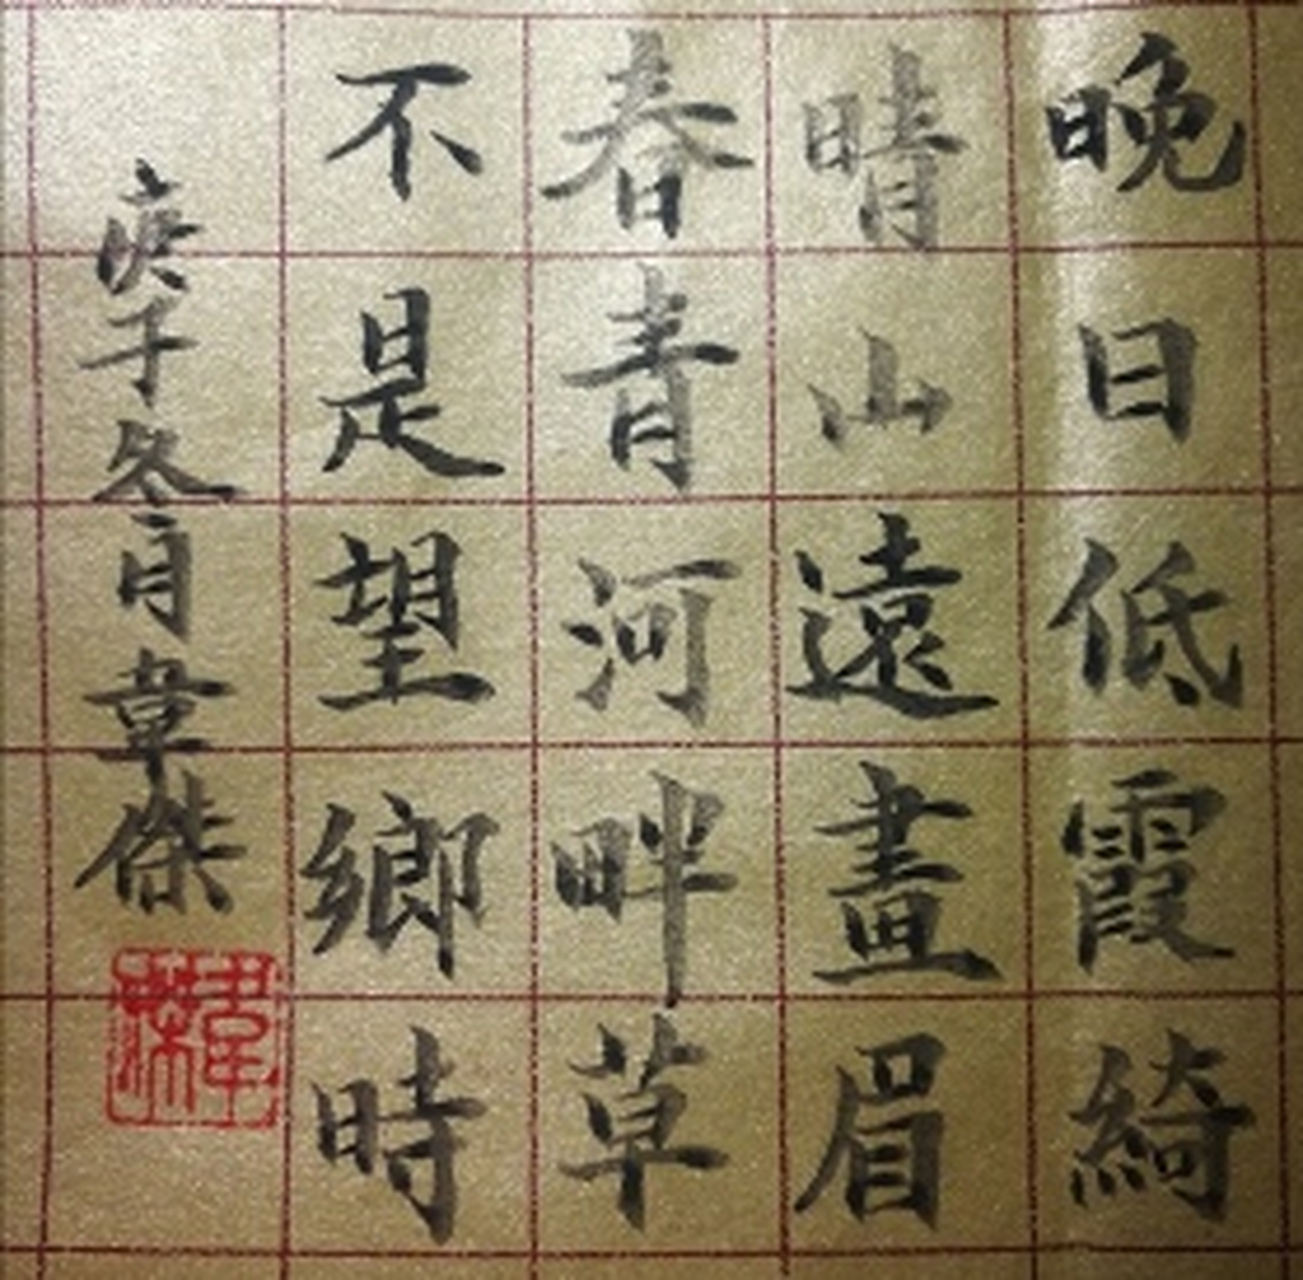 晚日低霞綺
晴山遠畫眉
春青河畔草
不是望鄉時
庚子冬月韋傑
韋傑